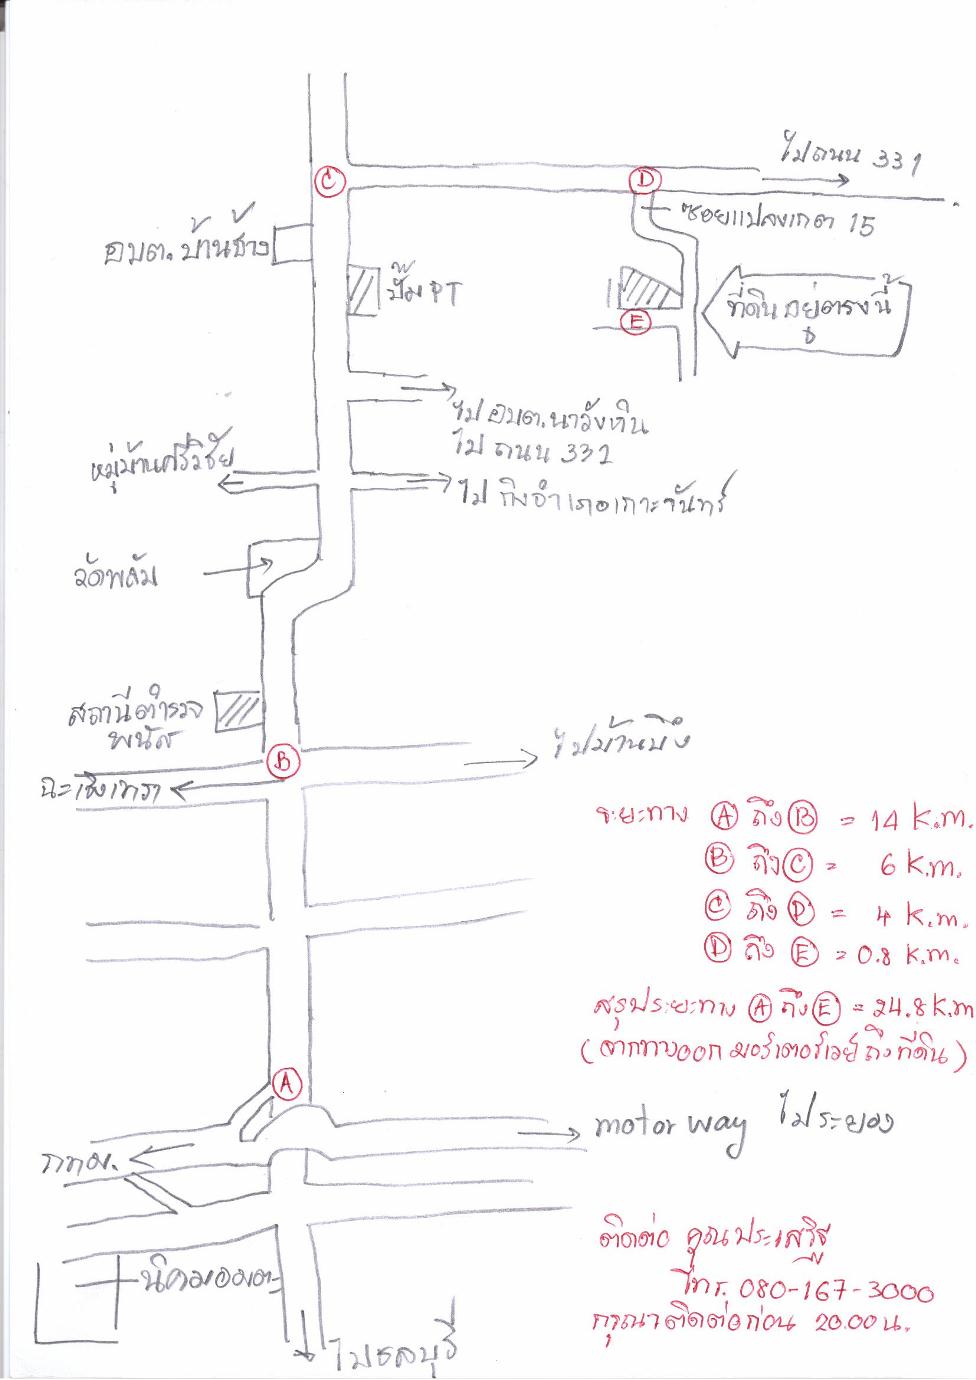 C
D
ไปถนน 331
ซอยแปลงเกต 15
อบต.บ้านช้าง
ปั๊ม PT
E
ที่ดินอยู่ตรงนี้
ไป อบต.นาวังหิน
ไป ถนน 331
หมู่บ้านศรีวิชัย
ไป กิ่งอำเภอเกาะจันทร์
วัดพลับ
สถานีตำรวจ
พนัส
B
ไปบ้านบึง
ฉะเชิงเทรา
ระยะทาง A ถึง B = 14 K.m.
B ถึง C = 6 K.m.
C ถึง D = 4 K.m.
D ถึง E = 0.8 K.m.
สรุประยะทาง A ถึง E = 24.8 K.m
(จากทางออก มอร์เตอร์เวย์ ถึง ที่ดิน)
A
motor way ไประยอง
กทม.
ติดต่อ คุณประเสริฐ
โทร. 080-167-3000
กรุณาติดต่อก่อน 20.00 น.
นิคมอมตะ
ไปชลบุรี